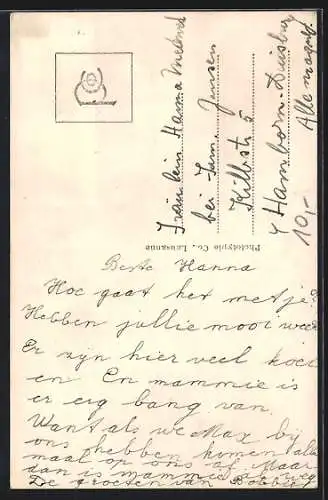 Fräulein Hanna
bei Fam. Jensen
Kilbstr 5
Hamborn-Duisburg
Allemagne
10,-
Phototypie Co., Lausanne
Beste Hanna
Hoe gaat het met je?
Hebben jullie mooi weer
Er zijn hier veel koei
en. En mammie is
er erg bang van.
Want als we Max bij
ons hebben komen alle
maal op ons af. Maar
dan is mammie al weg
De groeten van Bobby